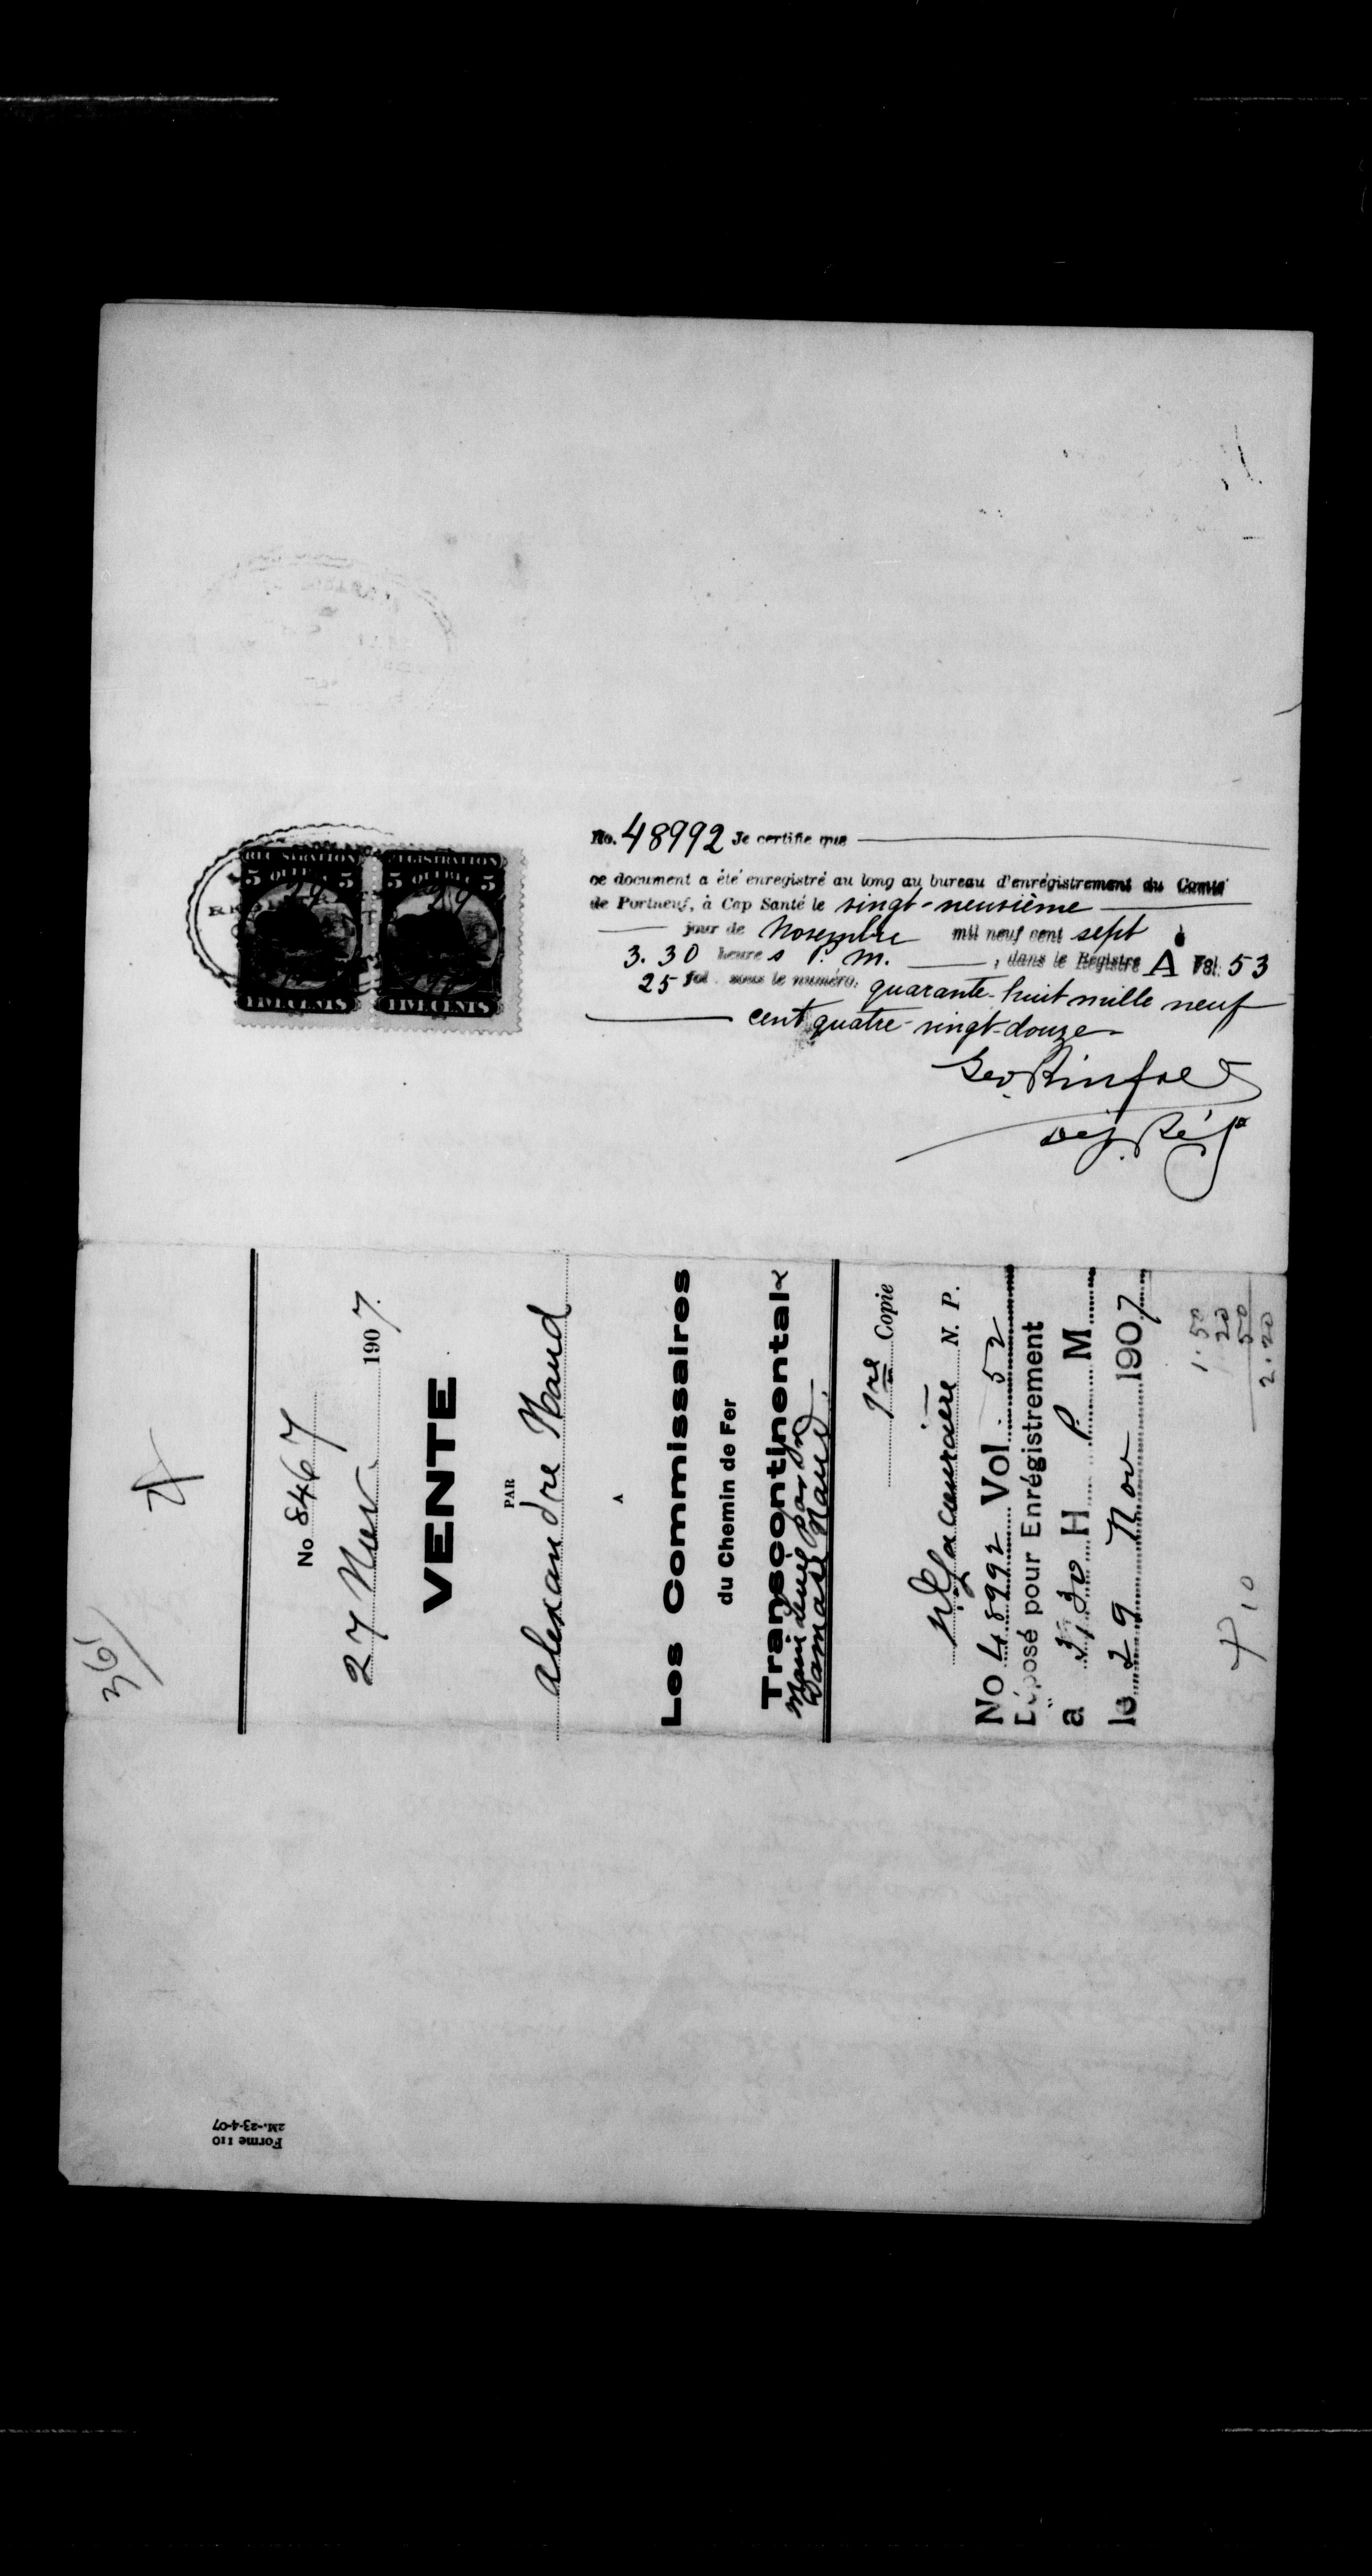 REGISTRATION REGISTRATION
5 QUEBEC 5 5 QUEBEC 5
29 29
FIVE CENTS FIVE CENTS
No. 48992 Je certifie que
ce document a été enregistré au long au bureau d'enrégistrement du Comté
de Portneuf, à Cap Santé le vingt-neuvième
jour de Novembre mil neuf cent sept à
3.30 heures P. M. , dans le Régistre A Vol. 53
25 fol. sous le numéro: quarante-huit mille neuf
cent quatre-vingt-douze
Geo. Rinfret
Dép. Régr
361
No 8467
27 Nov. 1907.
VENTE
PAR
Alexandre Naud
A
Les Commissaires
du Chemin de Fer
Transcontinental &
Damase Naud.
1re Copie
Lacoursière N. P.
No 48992 Vol. 52
Déposé pour Enrégistrement
a 3.30 H P. M
le 29 Nov 1907
1.50
20
50
2.20
Forme 110
2M.-23-4-07